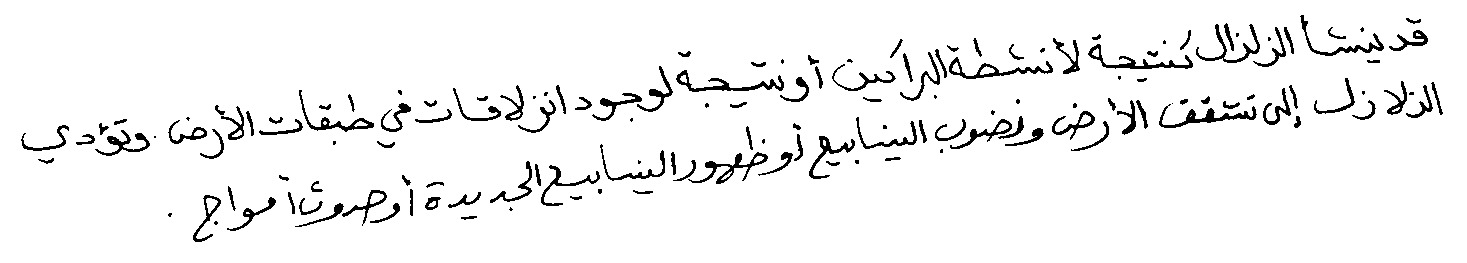 قد ينشأ الزلزال كنتيجة لأنشطة البراكين أو نتيجة لوجود انزلاقات في طبقات الأرض. وتؤدي
الزلازل إلى تشقق الأرض ونضوب الينابيع أو ظهور الينابيع الجديدة أو حدوث أمواج .